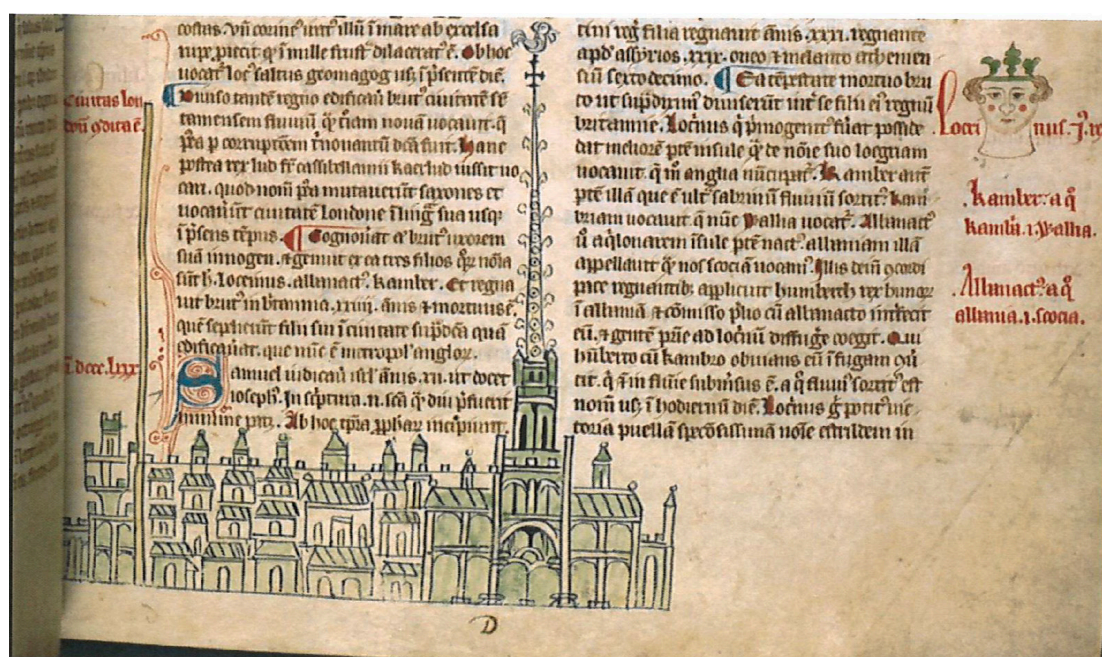 costas. Vn̄ corine᷒ illū ī mare ab excelsa
rupe ꝓiecit q̇ ī mille frusta dilacerat᷒ ē. Ob hoc
uocat᷒ loc᷒ saltus geomagog usq; ī p̄sentē diē.
¶ Diuiso tandē regno edificauit brut᷒ ciuitatē
tamensem fluuiū troiam nouā uocauit. q̄
p corruptōem t̓nouantū dc̄a fuit. Hanc
postea rex lud fr̄ cassibellanni kaerlud iussit uo
cari. quod nom̄ mutauerūt saxones et
uocauer̄t ciuitatē Londone ī lingᷓ sua usqꝫ
ī p̄sens tēpus. ¶ Cognouit brut᷒ uxorem
suā innogen. ⁊ genuit ex ea tres filios nōīa
sūt h̄. locrinus. albanact᷒. kamber. Et regna
uit brut᷒ in britannia. xxiiii. annis ⁊ mortuus ē.
quē sepelierūt filii sui ī ciuitate sup̄dc̄a quā
edificauerat. que nūc ē metropol᷒ anglor̄.
Samuel iudicauit isrl̄ annis. xii. ut docet
ioseph᷒. In sc̄ptura. n̄. q̄ diu p̄fuerit
Ab hoc tp̄ra ꝓphar̄ incipiunt.
filia regnauit annis. xxxi. regnante
apd̓ assyrios. xxix. oneo ⁊ melanto athenien
siū sexto decimo. ¶ Ea tēpestate mortuo bru
to ut sup̄dixim᷒ diuiserūt int̓ se filii ei᷒ regnū
britannie. Locrin᷒ q̇ p̄mogenit᷒ fuerat posside
bat meliorē ptē insule q̄ de nōīe suo loegriam
uocauit. q̄ m̊ anglia nūcupat᷒. Kamber aut̄
ptē illā que ē ult̓ sabrinū fluuiū sortit᷒ kam
briam uocauit q̄ nūc Wallia uocat᷒. Albanact᷒
u̓ aq̇lonarem īsule ptē nact᷒ albaniam illā
appellauit q̄ nos scociā uocam᷒. Illis dein̄ ꝯcordi
pace regnantib; applicuit humberch rex hunor̄
ī albaniā ⁊ cōmisso p̄lio cū albanacto int̓fecit
eū. ⁊ gentē pr̄ie ad locrinū diffugꝰe coegit. Qui
hūberto cū kambro obuians eū ī fugam
tit. q̇ ī flumine subm̓sus ē. a q̊ fluui᷒ sortit᷒ est
nom̄ usq; ī hodiernū diē. Locrinus g̊ potit᷒ uic
toria puellā speciosissimā nōīe estrildem in
Ciuitas lon
ꝯdita ē.
dccc. lxxx.
Locri nus. j. rex
Kamber. a q̊
kambria. i. Wallia.
Albanact᷒. a q̊
albania. i. scocia.
D